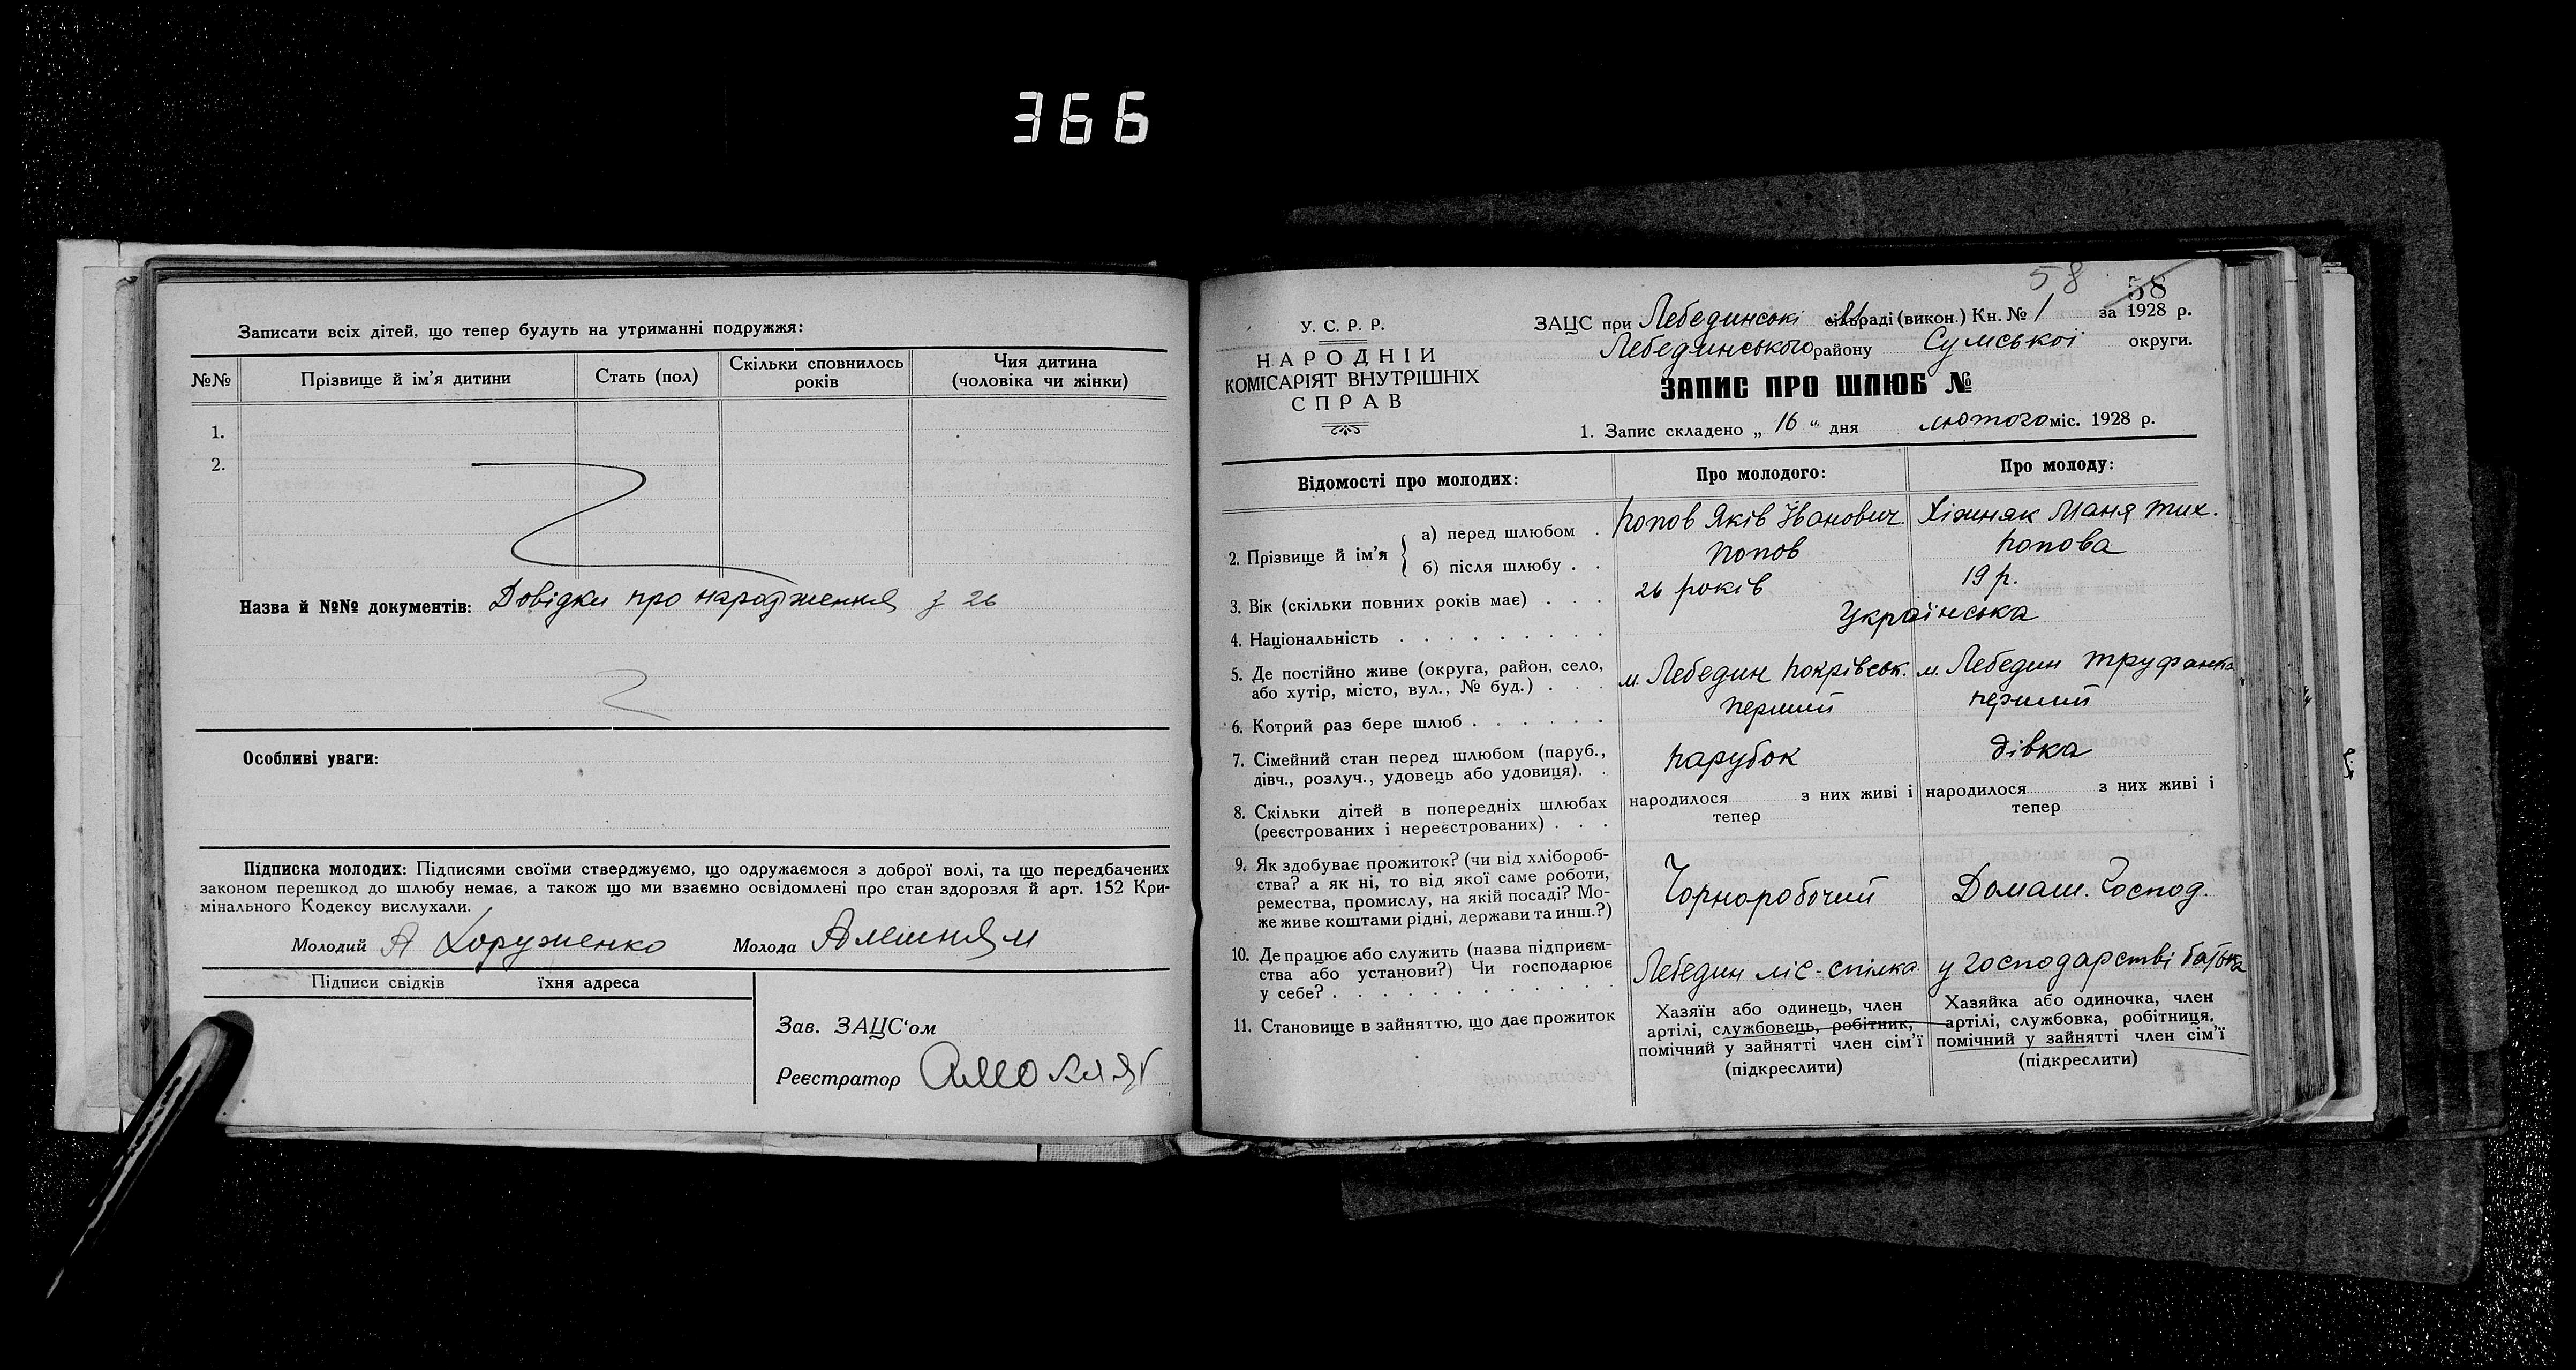 366
Записати всіх дітей, що тепер будуть на утриманні подружжя:
№№ Прізвище й ім'я дитини Стать (пол) Скільки сповнилось років Чия дитина (чоловіка чи жінки)
1.
2.
Назва й №№ документів: Довідки про народження з 26
Особливі уваги:
Підписка молодих: Підписями своїми стверджуємо, що одружаємося з доброї волі, та що передбачених
законом перешкод до шлюбу немає, а також що ми взаємно освідомлені про стан здоровля й арт. 152 Кри-
мінального Кодексу вислухали.
Молодий А Хоруженко Молода
Підписи свідків їхня адреса
Зав. ЗАЦС'ом
Реєстратор
58 58
У. С. Р. Р.
НАРОДНІЙ
КОМІСАРІЯТ ВНУТРІШНІХ
СПРАВ
ЗАЦС при Лебединські сільраді (викон.) Кн. № 1 за 1928 р.
Лебединського району Сумської округи.
ЗАПИС ПРО ШЛЮБ №
1. Запис складено „ 16 " дня лютого міс. 1928 р.
Відомості про молодих: Про молодого: Про молоду:
2. Прізвище й ім'я
а) перед шлюбом . Попов Яків Іванович. Хіжняк Маня Тих.
б) після шлюбу . . Попов Попова
3. Вік (скільки повних років має) . . . 26 років 19 р.
4. Національність . . . . . . . . . Українська
5. Де постійно живе (округа, район, село,
або хутір, місто, вул., № буд.) . . . м. Лебедин Покрівськ. м. Лебедин Труфанка
6. Котрий раз бере шлюб . . . . . . перший перший
7. Сімейний стан перед шлюбом (паруб.,
дівч., розлуч., удовець або удовиця). . парубок дівка
8. Скільки дітей в попередніх шлюбах
(реєстрованих і нереєстрованих) . . .
народилося з них живі і тепер
народилося з них живі і тепер
9. Як здобуває прожиток? (чи від хлібороб-
ства? а як ні, то від якої саме роботи,
ремества, промислу, на якій посаді? Мо-
же живе коштами рідні, держави та инш.?)
Чорноробочий Домаш. Господ.
10. Де працює або служить (назва підприєм-
ства або установи?) Чи господарює
у себе? . . . . . . . . . . . .
Лебедин ліс-спілка у господарстві батька
11. Становище в зайняттю, що дає прожиток
Хазяїн або одинець, член
артілі, службовець, робітник,
помічний у зайнятті член сім'ї
(підкреслити)
Хазяйка або одиночка, член
артілі, службовка, робітниця,
помічний у зайнятті член сім'ї
(підкреслити)